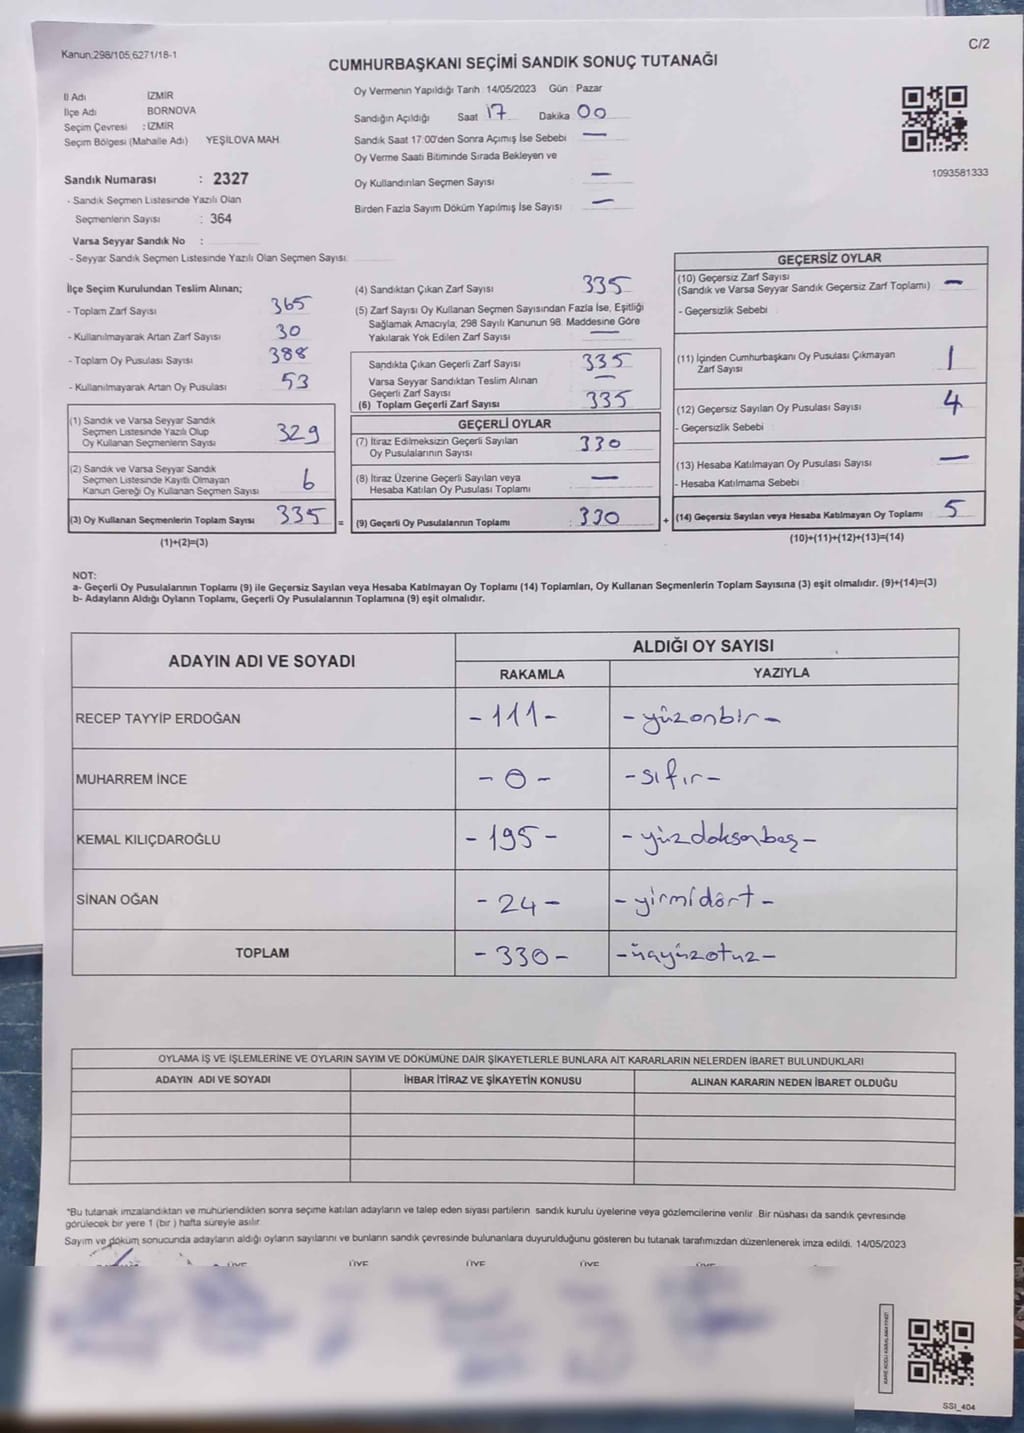 Kanun,298/105,6271/18-1
C/2
CUMHURBAŞKANI SEÇİMİ SANDIK SONUÇ TUTANAĞI
İl Adı İZMİR
İlçe Adı BORNOVA
Seçim Çevresi : İZMİR
Seçim Bölgesi (Mahalle Adı) YEŞİLOVA MAH
Sandık Numarası : 2327
- Sandık Seçmen Listesinde Yazılı Olan
Seçmenlerin Sayısı : 364
Varsa Seyyar Sandık No :
- Seyyar Sandık Seçmen Listesinde Yazılı Olan Seçmen Sayısı
Oy Vermenin Yapıldığı Tarih : 14/05/2023 Gün : Pazar
Sandığın Açıldığı Saat 17 Dakika 00
Sandık Saat 17:00'den Sonra Açımış İse Sebebi —
Oy Verme Saati Bitiminde Sırada Bekleyen ve
Oy Kullandırılan Seçmen Sayısı —
Birden Fazla Sayım Döküm Yapılmış İse Sayısı —
1093581333
İlçe Seçim Kurulundan Teslim Alınan;
- Toplam Zarf Sayısı 365
- Kullanılmayarak Artan Zarf Sayısı 30
- Toplam Oy Pusulası Sayısı 388
- Kullanılmayarak Artan Oy Pusulası 53
(1) Sandık ve Varsa Seyyar Sandık
Seçmen Listesinde Yazılı Olup
Oy Kullanan Seçmenlerin Sayısı 329
(2) Sandık ve Varsa Seyyar Sandık
Seçmen Listesinde Kayıtlı Olmayan
Kanun Gereği Oy Kullanan Seçmen Sayısı 6
(3) Oy Kullanan Seçmenlerin Toplam Sayısı 335 =
(1)+(2)=(3)
(4) Sandıktan Çıkan Zarf Sayısı 335
(5) Zarf Sayısı Oy Kullanan Seçmen Sayısından Fazla İse, Eşitliği
Sağlamak Amacıyla, 298 Sayılı Kanunun 98. Maddesine Göre
Yakılarak Yok Edilen Zarf Sayısı —
Sandıkta Çıkan Geçerli Zarf Sayısı 335
Varsa Seyyar Sandıktan Teslim Alınan
Geçerli Zarf Sayısı —
(6) Toplam Geçerli Zarf Sayısı 335
GEÇERLİ OYLAR
(7) İtiraz Edilmeksizin Geçerli Sayılan
Oy Pusulalarının Sayısı 330
(8) İtiraz Üzerine Geçerli Sayılan veya
Hesaba Katılan Oy Pusulası Toplamı —
(9) Geçerli Oy Pusulalarının Toplamı : 330 +
GEÇERSİZ OYLAR
(10) Geçersiz Zarf Sayısı
(Sandık ve Varsa Seyyar Sandık Geçersiz Zarf Toplamı) —
- Geçersizlik Sebebi
(11) İçinden Cumhurbaşkanı Oy Pusulası Çıkmayan
Zarf Sayısı 1
(12) Geçersiz Sayılan Oy Pusulası Sayısı 4
- Geçersizlik Sebebi
(13) Hesaba Katılmayan Oy Pusulası Sayısı —
- Hesaba Katılmama Sebebi
(14) Geçersiz Sayılan veya Hesaba Katılmayan Oy Toplamı 5
(10)+(11)+(12)+(13)=(14)
NOT:
a- Geçerli Oy Pusulalarının Toplamı (9) ile Geçersiz Sayılan veya Hesaba Katılmayan Oy Toplamı (14) Toplamları, Oy Kullanan Seçmenlerin Toplam Sayısına (3) eşit olmalıdır. (9)+(14)=(3)
b- Adayların Aldığı Oyların Toplamı, Geçerli Oy Pusulalarının Toplamına (9) eşit olmalıdır.
ADAYIN ADI VE SOYADI
ALDIĞI OY SAYISI
RAKAMLA YAZIYLA
RECEP TAYYİP ERDOĞAN -111- -yüzonbir-
MUHARREM İNCE -0- -sıfır-
KEMAL KILIÇDAROĞLU -195- -yüzdoksanbeş-
SİNAN OĞAN -24- -yirmidört-
TOPLAM -330- -üçyüzotuz-
OYLAMA İŞ VE İŞLEMLERİNE VE OYLARIN SAYIM VE DÖKÜMÜNE DAİR ŞİKAYETLERLE BUNLARA AİT KARARLARIN NELERDEN İBARET BULUNDUKLARI
ADAYIN ADI VE SOYADI İHBAR İTİRAZ VE ŞİKAYETİN KONUSU ALINAN KARARIN NEDEN İBARET OLDUĞU
*Bu tutanak imzalandıktan ve mühürlendikten sonra seçime katılan adayların ve talep eden siyasi partilerin sandık kurulu üyelerine veya gözlemcilerine verilir. Bir nüshası da sandık çevresinde
görülecek bir yere 1 (bir ) hafta süreyle asılır.
Sayım ve döküm sonucunda adayların aldığı oyların sayılarını ve bunların sandık çevresinde bulunanlara duyurulduğunu gösteren bu tutanak tarafımızdan düzenlenerek imza edildi. 14/05/2023
ÜYE ÜYE ÜYE ÜYE ÜYE
KARE KODU KARALAMAYINIZ!
SSI_404